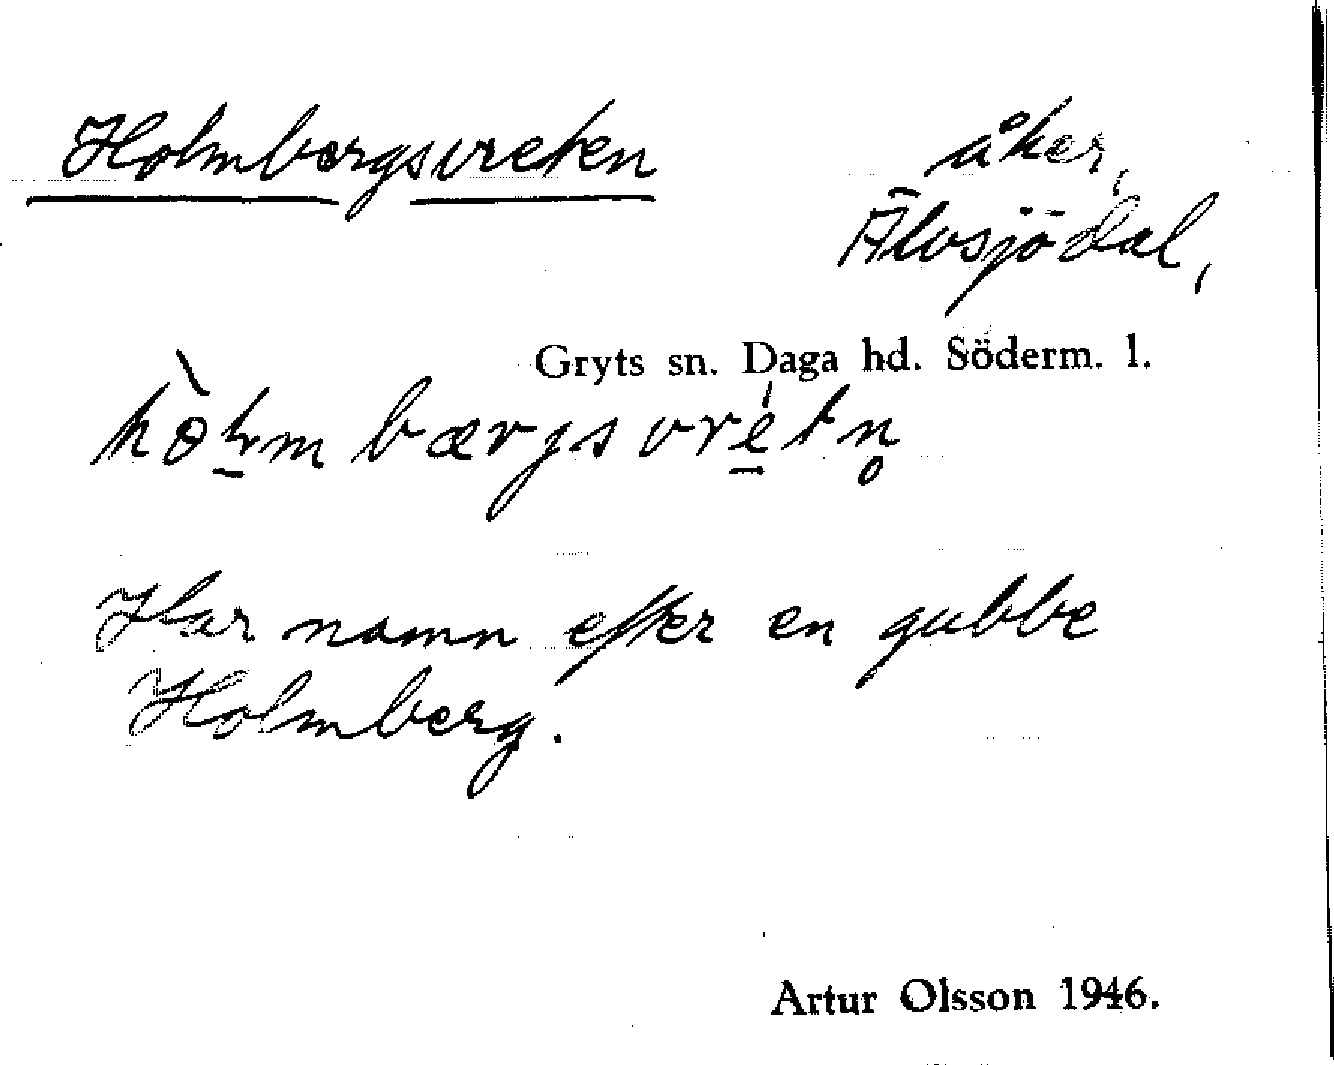 Holmbergsvreten
åker,
Älvsjödal,
Gryts sn. Daga hd. Söderm. l.
Har namn efter en gubbe
Holmberg.
Artur Olsson 1946.